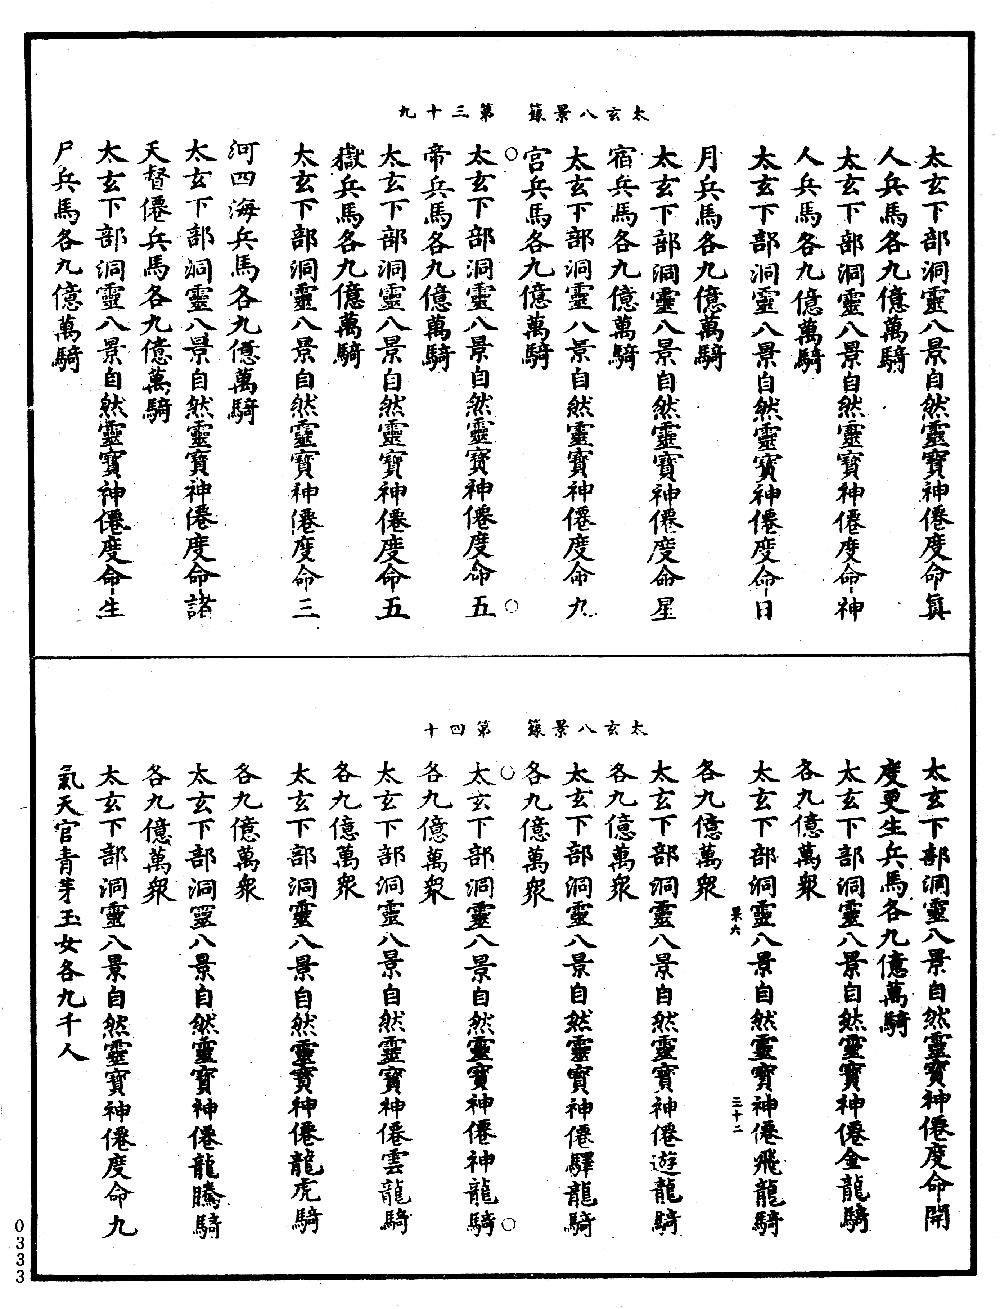 太玄八景籙　第三十九
太玄下部洞靈八景自然靈寶神僊度命真
人兵馬各九億萬騎
太玄下部洞靈八景自然靈寶神僊度命神
人兵馬各九億萬騎
太玄下部洞靈八景自然靈寶神僊度命日
月兵馬各九億萬騎
太玄下部洞靈八景自然靈寶神僊度命星
宿兵馬各九億萬騎
太玄下部洞靈八景自然靈寶神僊度命九
宮兵馬各九億萬騎
太玄下部洞靈八景自然靈寶神僊度命五
帝兵馬各九億萬騎
太玄下部洞靈八景自然靈寶神僊度命五
嶽兵馬各九億萬騎
太玄下部洞靈八景自然靈寶神僊度命三
河四海兵馬各九億萬騎
太玄下部洞靈八景自然靈寶神僊度命諸
天督僊兵馬各九億萬騎
太玄下部洞靈八景自然靈寶神僊度命生
尸兵馬各九億萬騎
太玄八景籙　第四十
太玄下部洞靈八景自然靈寶神僊度命開
度更生兵馬各九億萬騎
太玄下部洞靈八景自然靈寶神僊金龍騎
各九億萬眾
太玄下部洞靈八景自然靈寶神僊飛龍騎
果六　三十二
各九億萬眾
太玄下部洞靈八景自然靈寶神僊遊龍騎
各九億萬眾
太玄下部洞靈八景自然靈寶神僊驛龍騎
各九億萬眾
太玄下部洞靈八景自然靈寶神僊神龍騎
各九億萬眾
太玄下部洞靈八景自然靈寶神僊雲龍騎
各九億萬眾
太玄下部洞靈八景自然靈寶神僊龍虎騎
各九億萬眾
太玄下部洞靈八景自然靈寶神僊龍騰騎
各九億萬眾
太玄下部洞靈八景自然靈寶神僊度命九
氣天官青芽玉女各九千人
0333